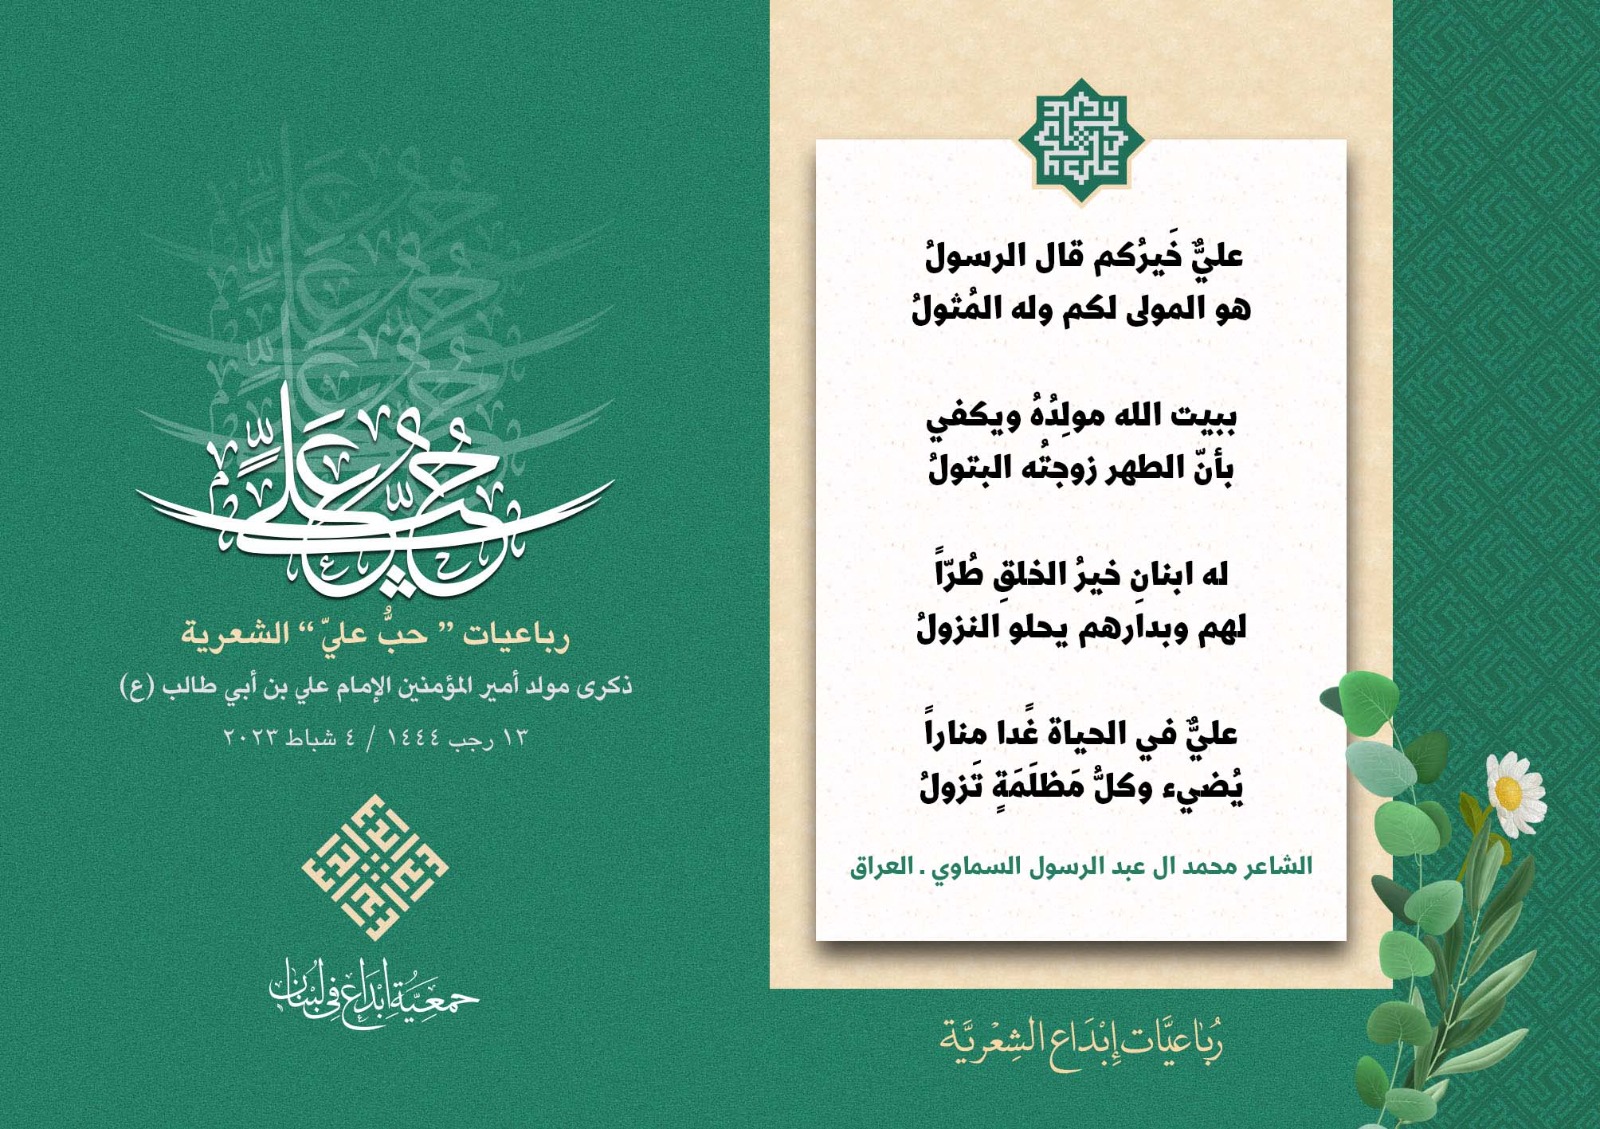 عليٌّ خَيرُكم قال الرسولُ
هو المولى لكم وله المُثولُ
ببيت الله مولِدُهُ ويكفي
بأنّ الطهر زوجتُه البتولُ
له ابنانِ خيرُ الخلقِ طُرّاً
لهم وبدارهم يحلو النزولُ
عليٌّ في الحياة غًدا مناراً
يُضيء وكلُّ مَظلَمَةٍ تَزولُ
الشاعر محمد ال عبد الرسول السماوي . العراق
رُباعيَّات إبْدَاع الشِعْريَّة
حُبّ عَليّ
رباعيات ” حبُّ عليّ “ الشعرية
ذكرى مولد أمير المؤمنين الإمام علي بن أبي طالب (ع)
١٣ رجب ١٤٤٤ / ٤ شباط ٢٠٢٣
جمعيّة إبْدَاع في لبنان